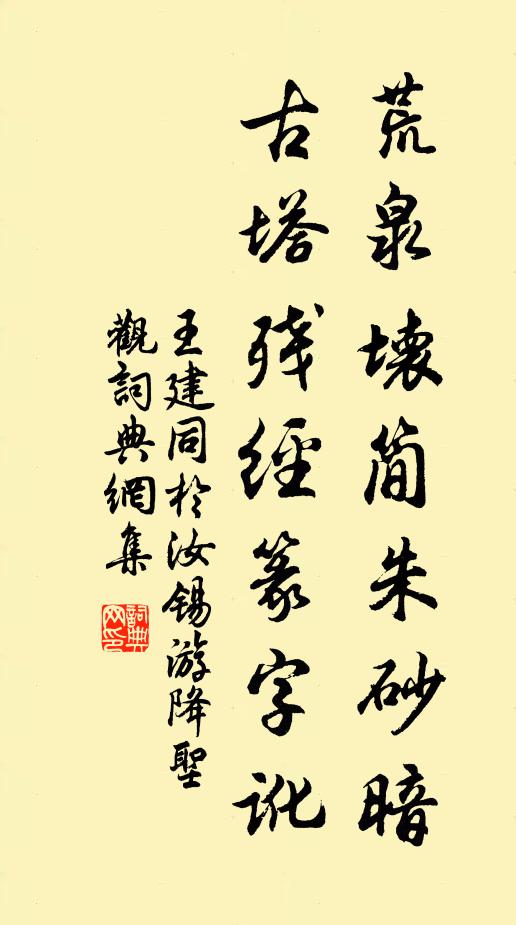 荒泉壞简朱砂暗
古塔残經篆字訛
王建同於汝锡游降聖
觀詞典網集
詞典网印